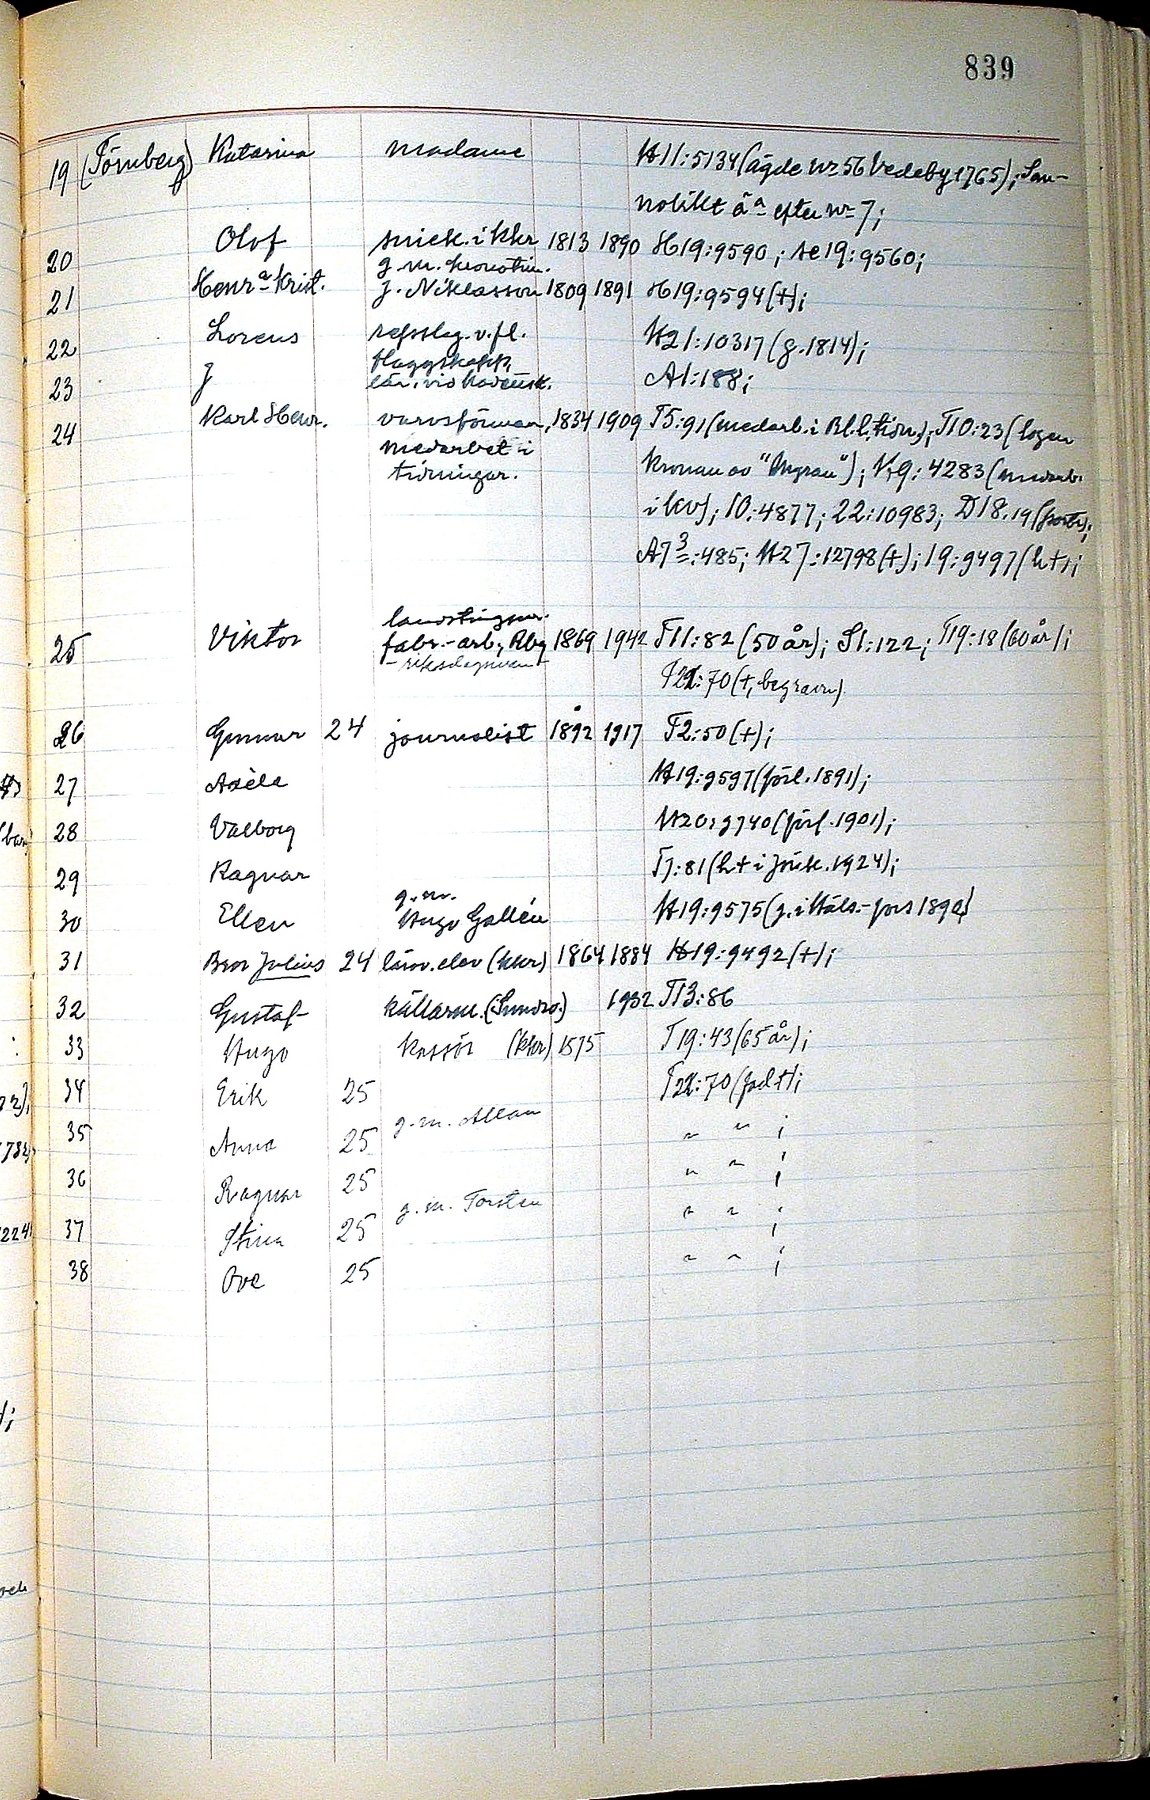 839
19 (Törnberg) Katarina madame H11:5134 (ägde № 56 Vedeby 1765); San-
nolikt äa efter № 7;
20 Olof snick. i kkr 1813 1890 H19:9590; se 19:9560;
g.m. kronotim.
21 Henra Krist. J. Niklasson 1809 1891 H19:9594 (†);
22 Lorens repslag. v. fl. H21:10317 (g. 1814);
flaggskepp.
23 J lär. vid A1:188;
24 Karl Henr. varvsförman, 1834 1909 T5:91 (medarb. i Bl. l. tidn.); T10:23 (logen
medarbet. i Kronan av "Ungran"); H9:4283 (medarb.
tidningar. i kv); 10:4877; 22:10983; D18:19 (portr);
A7 3:485; H27:12798 (†); 19:9497 (h †);
landstingsm.
25 Viktor fabr.-arb., Rbg 1869 1942 T11:82 (50 år); S1:122; T19:18 (60 år);
- riksdagsman - T22:70 (†, begravn)
26 Gunnar 24 journalist 1892 1917 T2:50 (†);
27 Adèle H19:9597 (förl. 1891);
28 Valborg H20:9740 (förl. 1901);
29 Ragnar T7:81 (h † i Jönk. 1924);
g.m.
30 Ellen Hugo Gallén H19:9575 (g. i Häls.-fors 1892)
31 Bror Julius 24 lärov. elev (kkr) 1864 1884 H19:9492 (†);
32 Gustaf källarm. (Sundsv.) 1932 T13:86
33 Hugo kassör (kkr) 1575 T19:43 (65 år);
34 Erik 25 T22:70 (fad †);
35 Anna 25 g.m. Allan " " ;
36 Ragnar 25 " " ;
37 Stina 25 g.m. Torsten " " ;
38 Ove 25 " " ;